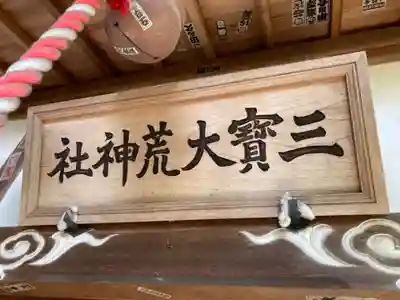 三寳大荒神社